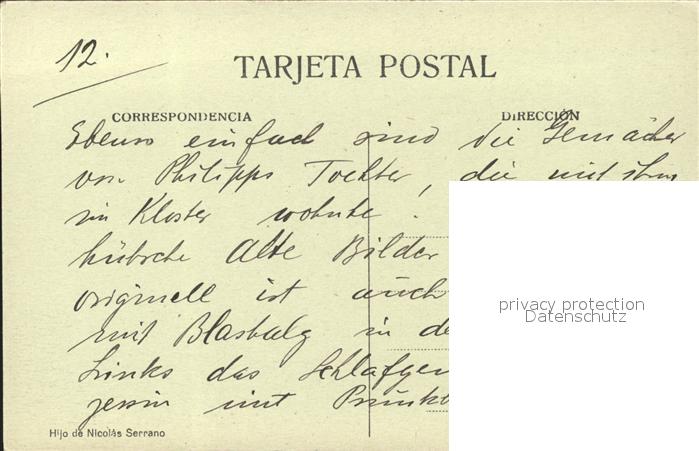 12.
TARJETA POSTAL
CORRESPONDENCIA DIRECCIÓN
Ebenso einfach sind die Gemächer
von Philipps Tochter, die mit ihm
im Kloster wohnte.
hübsche alte Bilder
originell ist auch
mit Blasbalg in de
Links das Schlafgem
zessin mit Prunkb
privacy protection
Datenschutz
Hijo de Nicolás Serrano